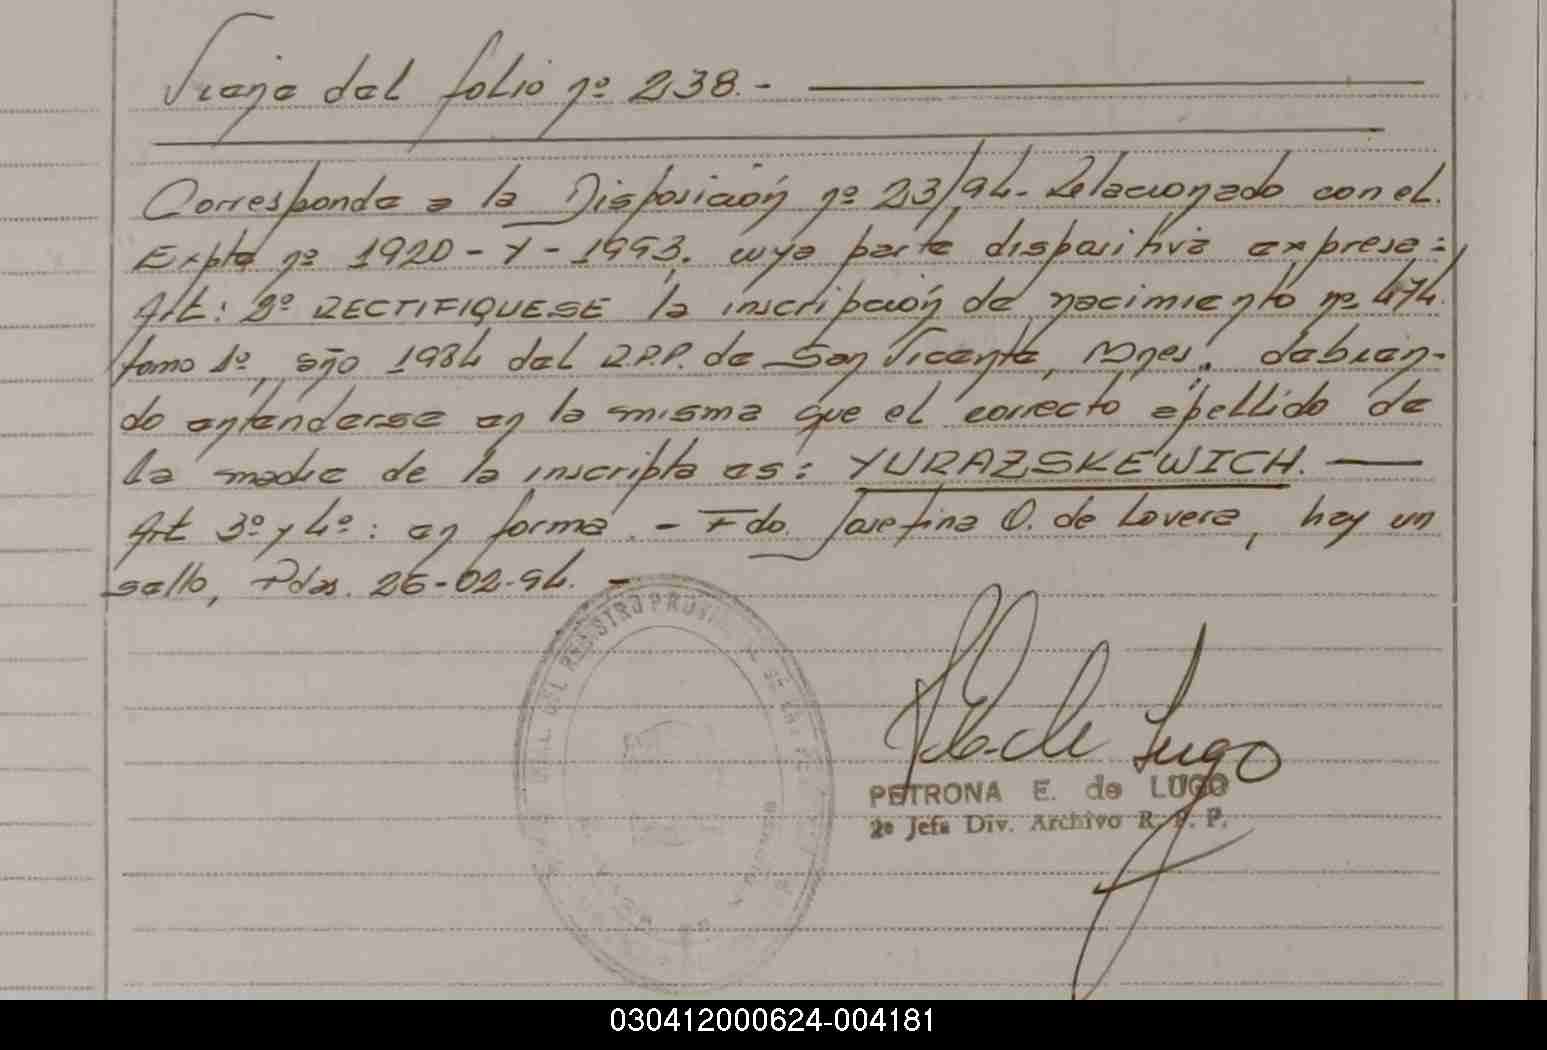 Viene del folio nº 238.-
Corresponde a la Disposición nº 23/94. Relacionado con el.
Expte nº 1920-Y-1993. cuya parte dispositiva expresa:
Art: 2º RECTIFIQUESE la inscripción de nacimiento nº 474.
tomo 1º, año 1984 del R.P.P. de San Vicente, Mnes. debien-
do entenderse en la misma que el correcto apellido de
la madre de la inscripta es: YURAZSKEWICH.
Art 3º y 4º: en forma.- Fdo. Josefina O. de Lovera, hay un
sello, Pdas. 26-02-94.-
DEL REGISTRO PROVINCIAL DE LAS
PETRONA E. de LUGO
2º Jefa Div. Archivo R. P. P.
030412000624-004181